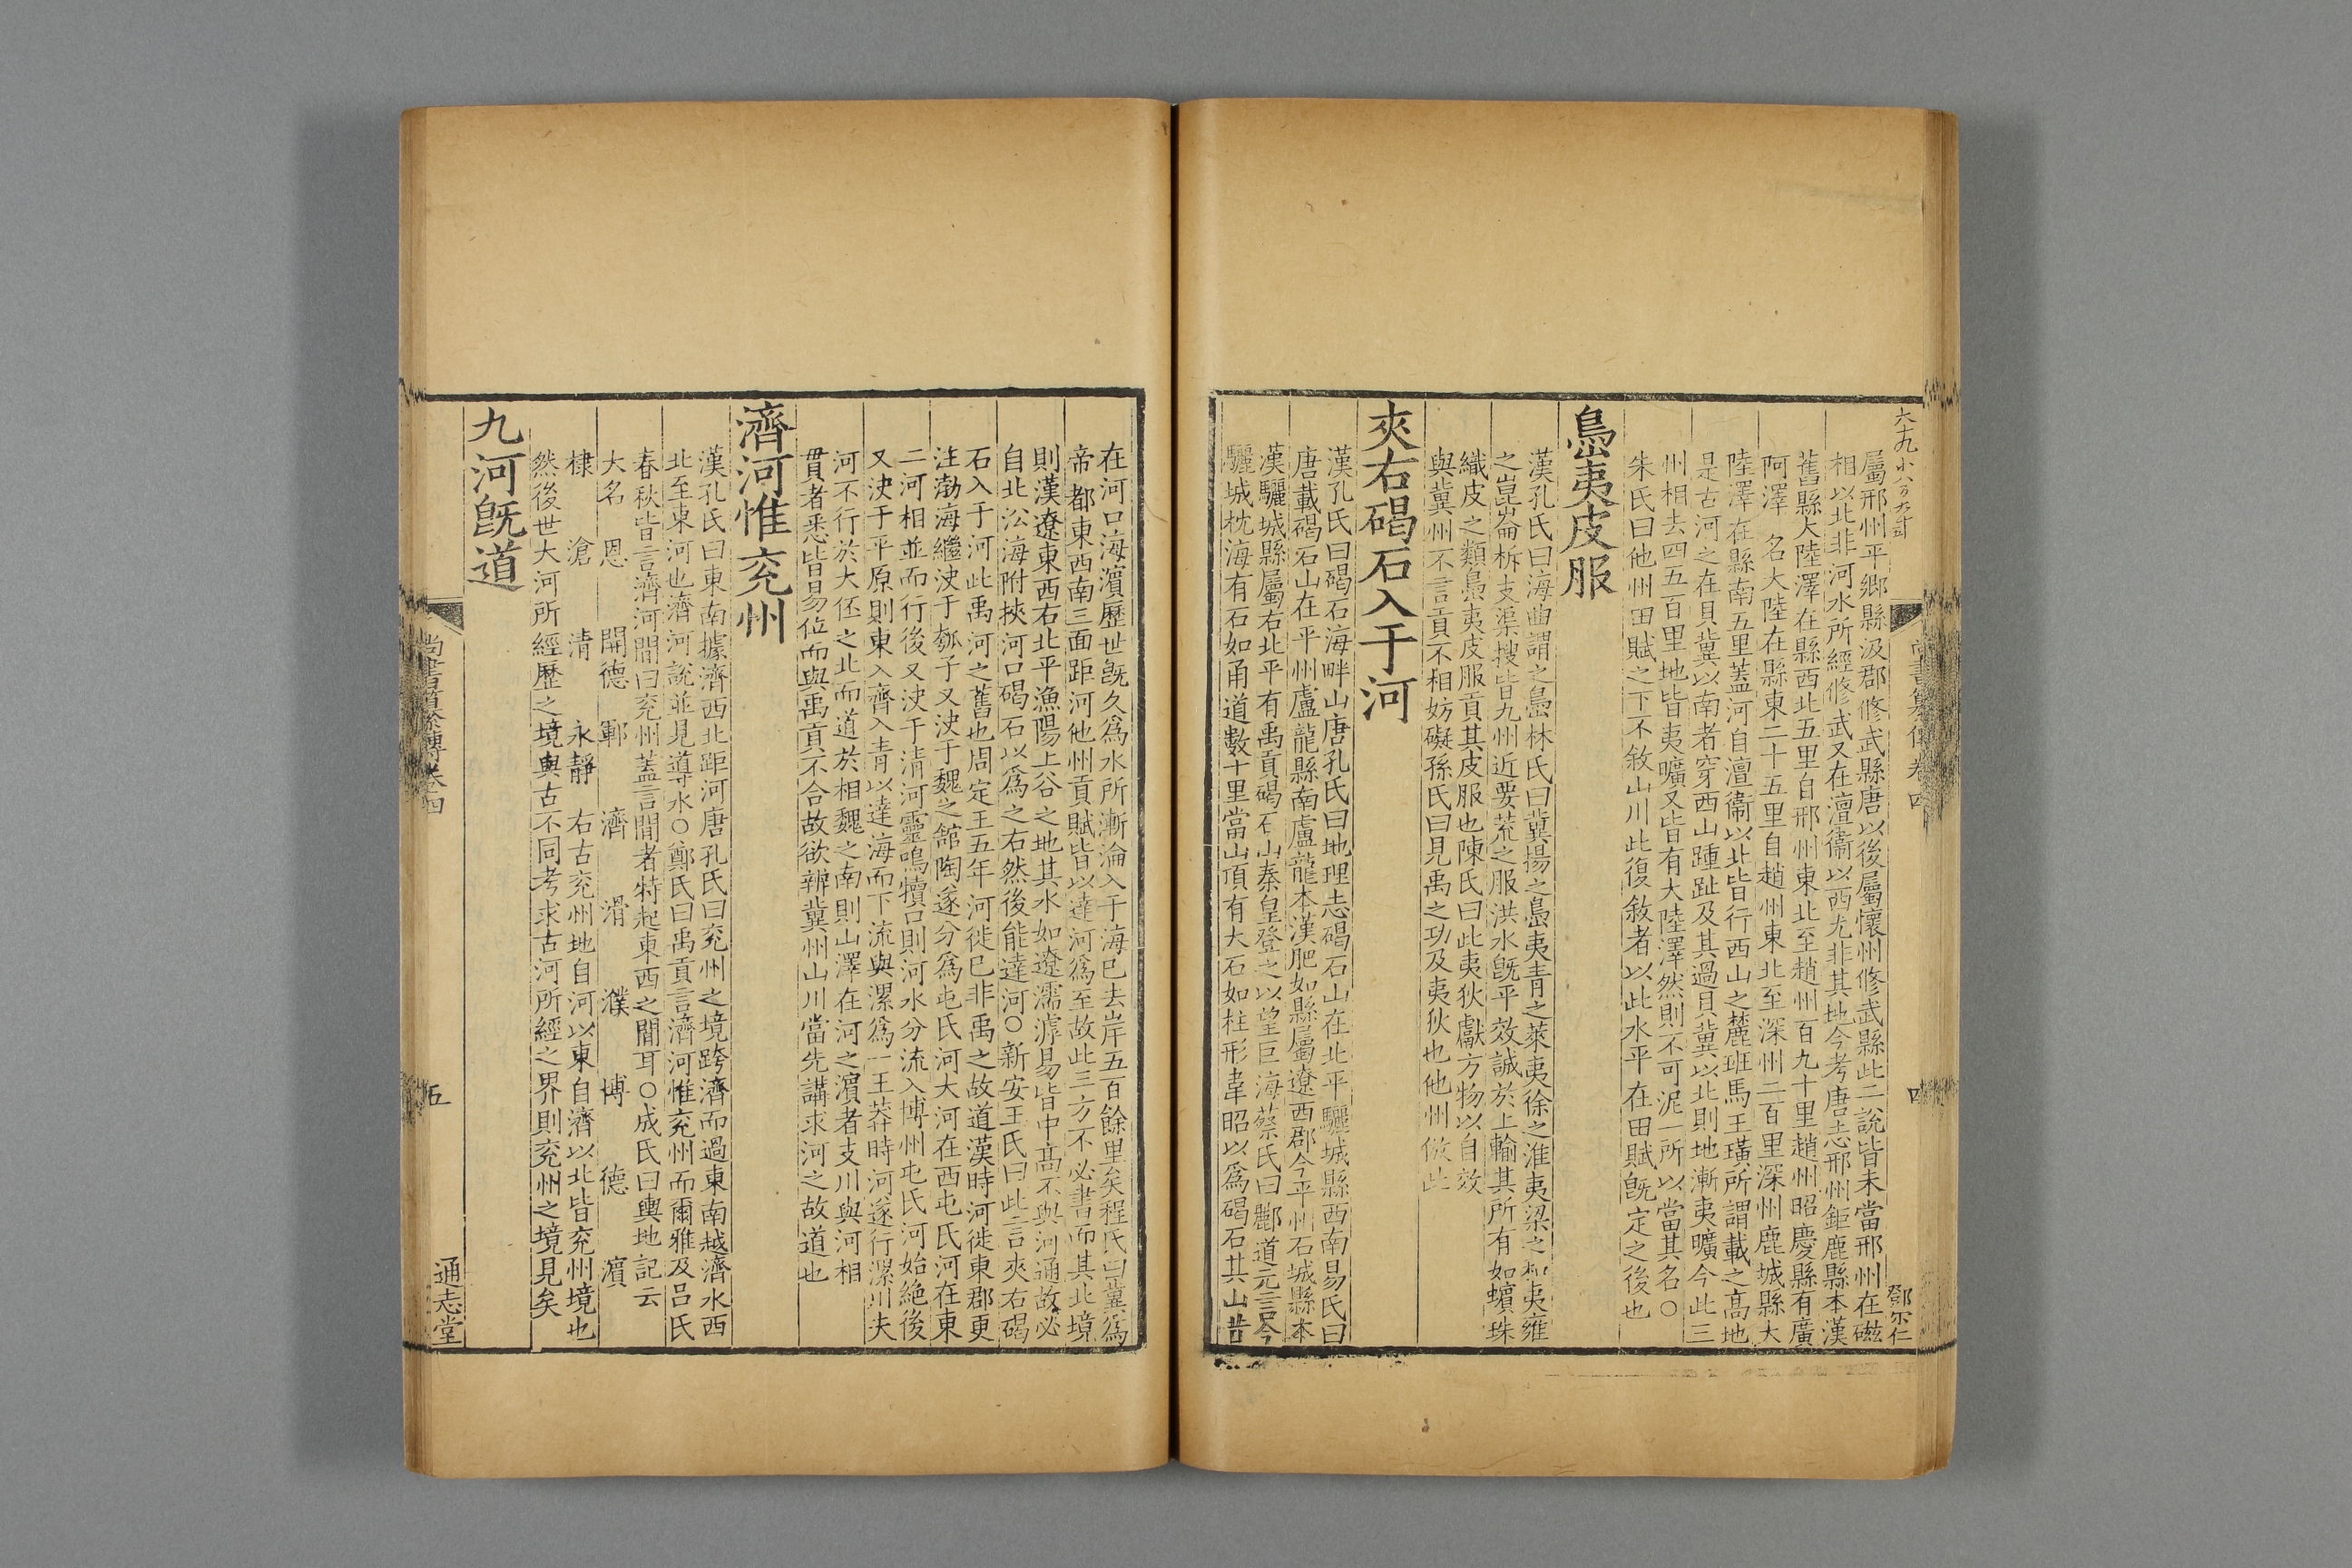 屬邢州平鄉縣汲郡修武縣唐以後屬懷州修武縣此二說皆未當邢州在磁
相以北非河水所經修武又在澶衞以西尤非其地今考唐志邢州鉅鹿縣本漢
舊縣大陸澤在縣西北五里自邢州東北至趙州百九十里趙州昭慶縣有廣
阿澤一名大陸在縣東二十五里自趙州東北至深州二百里深州鹿城縣大
陸澤在縣南五里蓋河自澶衞以北皆行西山之麓班馬王璜所謂載之高地
是古河之在貝冀以南者穿西山踵趾及其過貝冀以北則地漸夷曠今此三
州相去四五百里地皆夷曠又皆有大陸澤然則不可泥一所以當其名○
朱氏曰他州田賦之下不敘山川此復敘者以此水平在田賦旣定之後也
島夷皮服
漢孔氏曰海曲謂之島林氏曰冀揚之島夷青之萊夷徐之淮夷梁之和夷雍
之崑崙析支渠搜皆九州近要荒之服洪水旣平效誠於上輸其所有如蠙珠
織皮之類島夷皮服貢其皮服也陳氏曰此夷狄獻方物以自效
與冀州不言貢不相妨礙孫氏曰見禹之功及夷狄也他州倣此
夾右碣石入于河
漢孔氏曰碣石海畔山唐孔氏曰地理志碣石山在北平驪城縣西南易氏曰
唐載碣石山在平州盧龍縣南盧龍本漢肥如縣屬遼西郡今平州石城縣本
漢驪城縣屬右北平有禹貢碣石山秦皇登之以望巨海蔡氏曰酈道元言今
驪城枕海有石如甬道數十里當山頂有大石如柱形韋昭以爲碣石其山昔
尚書纂傳卷四
四
鄧尔仁
在河口海濱歷世旣久爲水所漸淪入于海已去岸五百餘里矣程氏曰冀爲
帝都東西南三面距河他州貢賦皆以達河爲至故此三方不必書而其北境
則漢遼東西右北平漁陽上谷之地其水如遼濡滹易皆中高不與河通故必
自北㳂海附挾河口碣石以爲之右然後能達河○新安王氏曰此言夾右碣
石入于河此禹河之舊也周定王五年河徙已非禹之故道漢時河徙東郡更
注渤海繼決于瓠子又決于魏之舘陶遂分爲屯氏河大河在西屯氏河在東
二河相並而行後又決于清河靈鳴犢口則河水分流入博州屯氏河始絶後
又決于平原則東入齊入青以達海而下流與漯爲一王莽時河遂行漯川夫
河不行於大伾之北而道於相魏之南則山澤在河之濵者支川與河相
貫者悉皆易位而與禹貢不合故欲辨冀州山川當先講求河之故道也
濟河惟兖州
漢孔氏曰東南據濟西北距河唐孔氏曰兖州之境跨濟而過東南越濟水西
北至東河也濟河說並見導水○鄭氏曰禹貢言濟河惟兖州而爾雅及呂氏
春秋皆言濟河間曰兖州蓋言間者特起東西之間耳○成氏曰輿地記云
大名　恩　開德　鄆　濟　滑　濮　博　德　濵
棣　滄　清　永靜　右古兖州地自河以東自濟以北皆兖州境也
然後世大河所經歷之境與古不同考求古河所經之界則兖州之境見矣
九河旣道
尚書纂傳卷四
五
通志堂